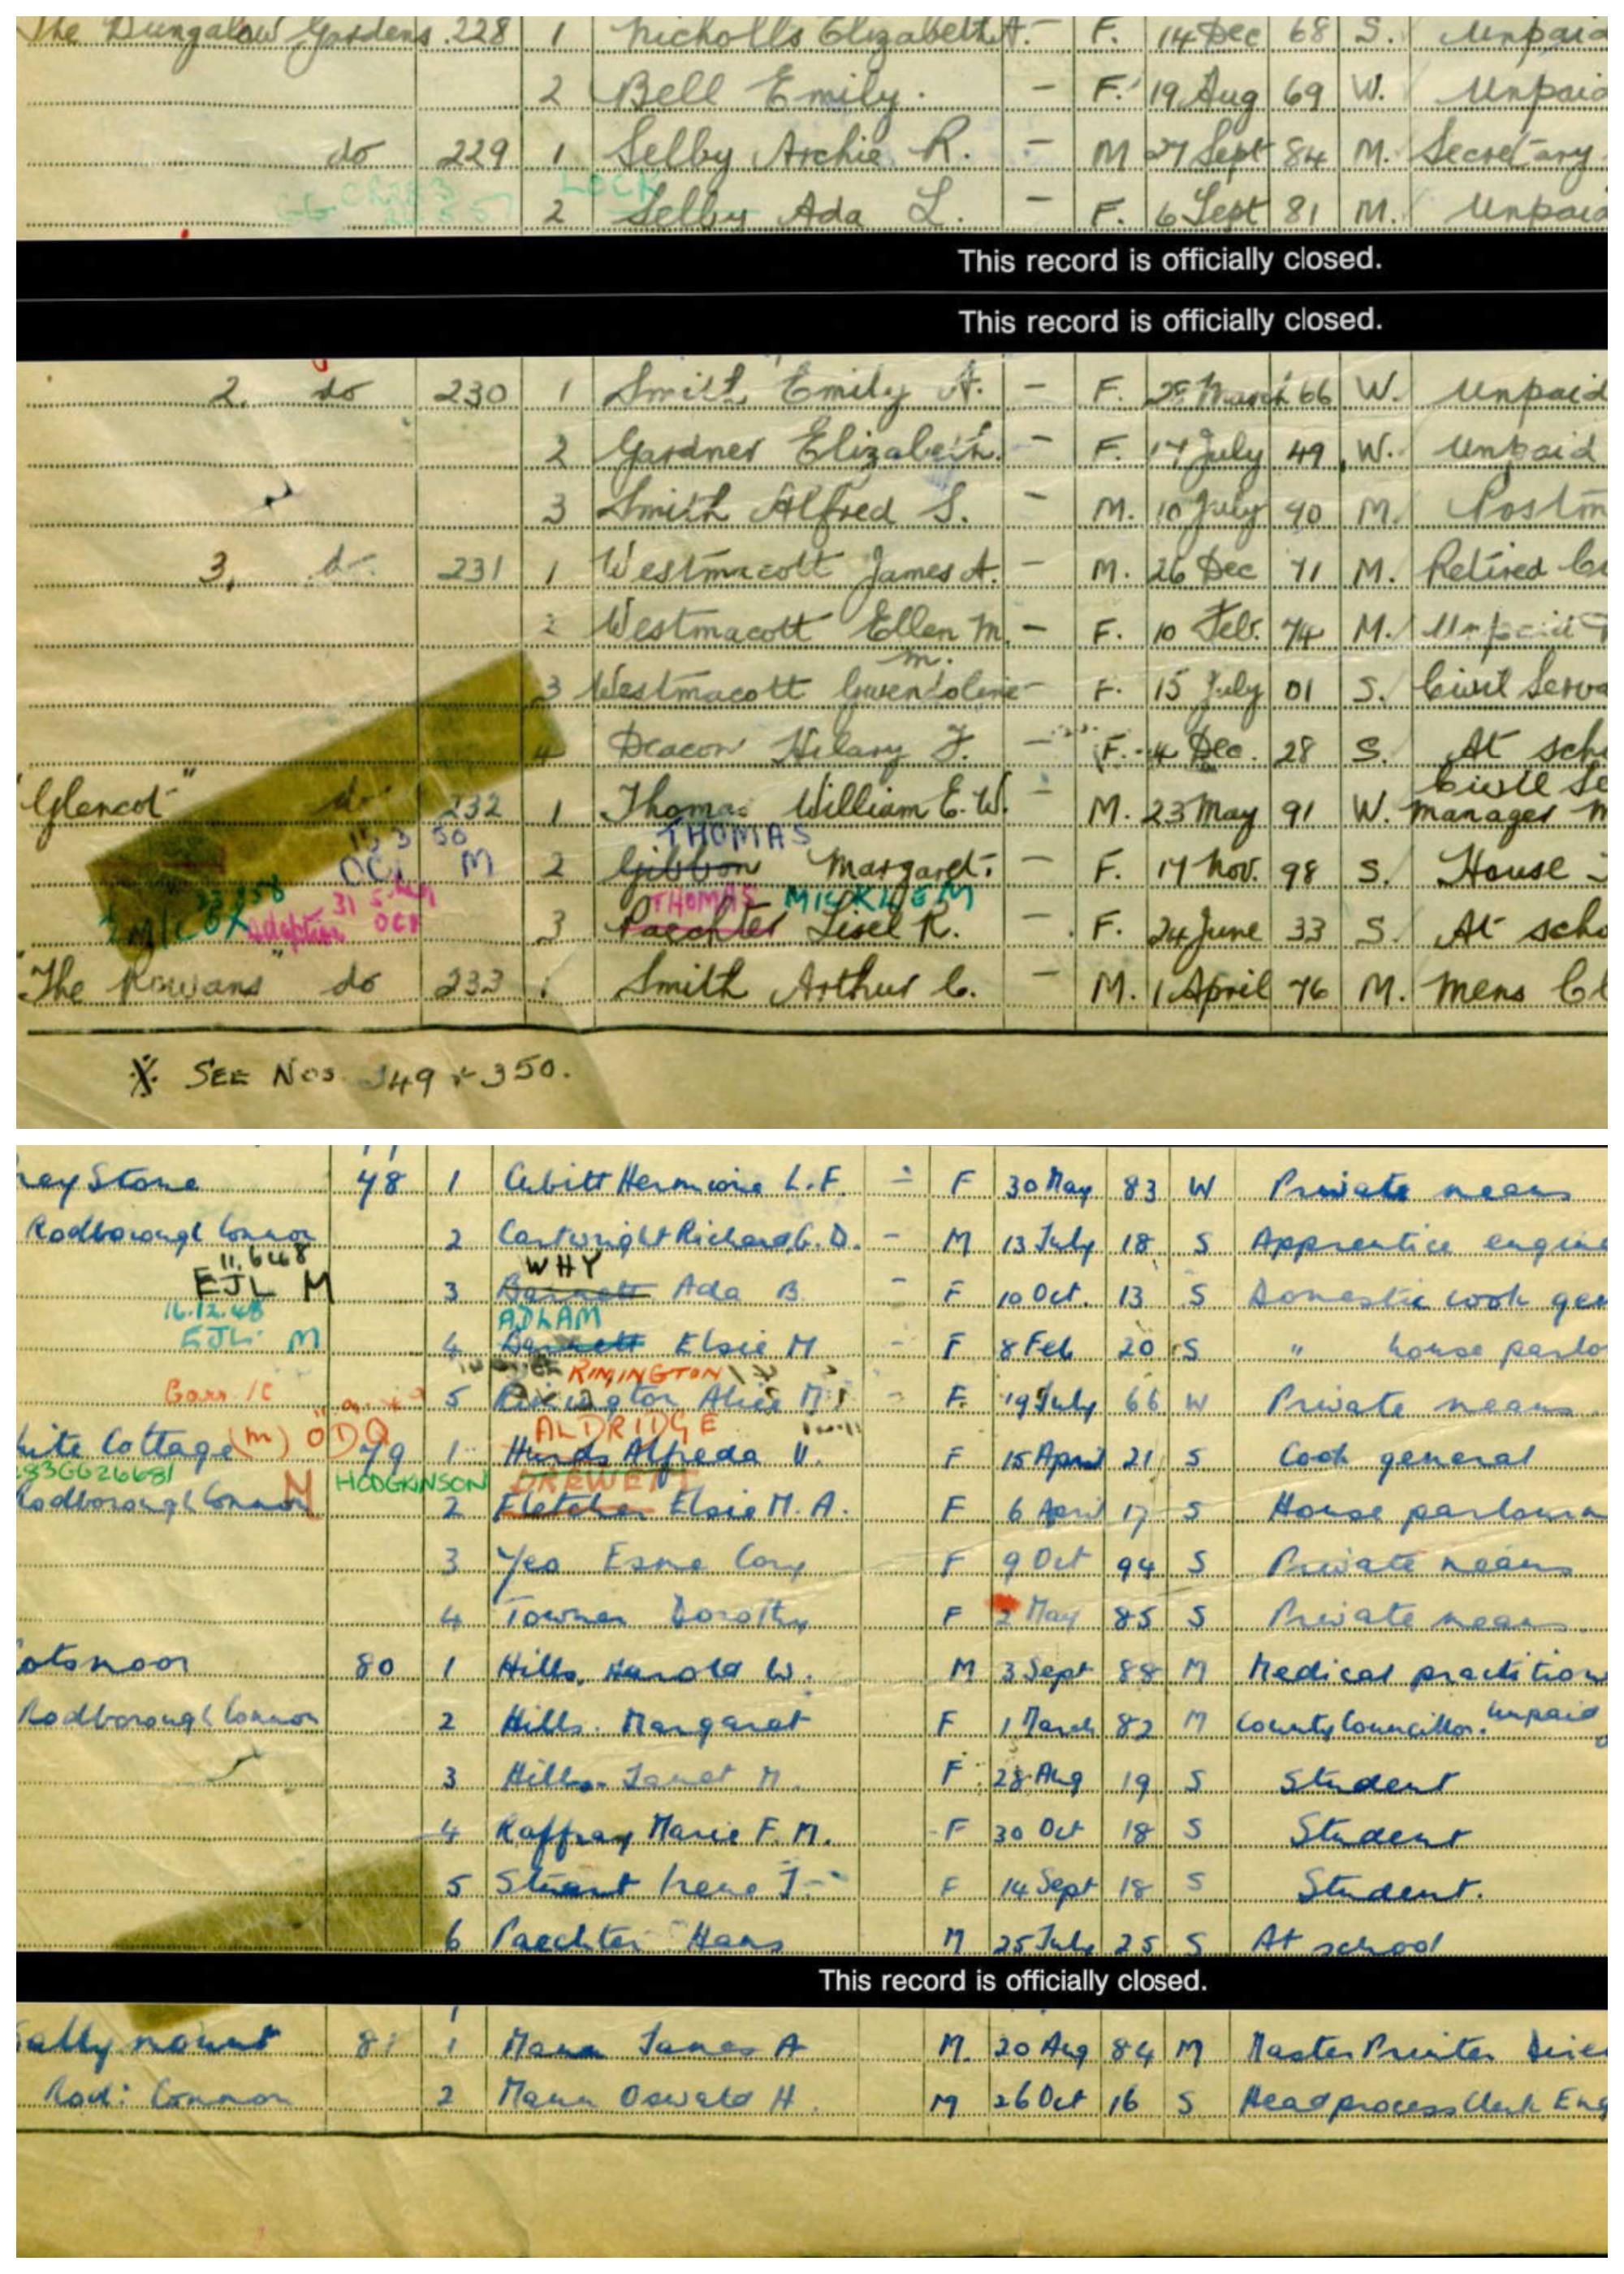 The Bungalow Gardens. 228 1 Nicholls Elizabeth A. - F. 14 Dec 68 S. Unpaid
2 Bell Emily. - F. 19 Aug 69 W. Unpaid
do 229 1 Selby Archie R. - M 27 Sept 84 M. Secretary
LOCK
2 Selby Ada L. - F. 6 Sept 81 M. Unpaid
This record is officially closed.
This record is officially closed.
2. do 230 1 Smith Emily A. - F. March 66 W. Unpaid
2 Gardner Elizabeth. - F. 17 July 49 W. Unpaid
3 Smith Alfred S. - M. 10 July 90 M. Postm
3. do 231 1 Westmacott James A. - M. 26 Dec 71 M. Retired
2 Westmacott Ellen M. - F. 10 Feb. 74 M. Unpaid
M.
3 Westmacott Gwendoline - F. 15 July 01 S. Civil Serva
4 Deacon Hilary F. - F. 4 Dec. 28 S. At scho
Civil Se
"Glencot" do 232 1 Thomas William E. W. - M. 23 May 91 W. Manager
15 3 50 THOMAS
OCL M 2 Gibbon Margaret. - F. 17 Nov. 98 S. House
THOMAS MICKLEM
Adoption 3 Paechter Lisel R. - F. 24 June 33 S. At scho
"The Rowans" do 233 1 Smith Arthur C. - M. 1 April 76 M. Mens Cl
X. SEE Nos. 349 + 350.
rey Stone 78 1 Cubitt Hermione L. F. - F 30 May 83 W Private means
Rodborough Common 2 Cartwright Richard G. D. - M 13 July 18 S Apprentice engine
11.6.48 WHY
EJL M 3 Barnett Ada B - F 10 Oct. 13 S Domestic cook gen
16.12.48 ADLAM
EJL M 4 Barnett Elsie M - F 8 Feb 20 S " house parlo
RIMINGTON
5 Alice M - F. 19 July 66 W Private means
ALDRIDGE
hite Cottage (m) ODQ 79 1 Hurds Alfreda V. F 15 April 21 S Cook general
HODGKINSON DREWETT
Rodborough Common M 2 Fletcher Elsie M. A. F 6 April 17 S House parlourm
3 Yeo Esme Cory F 9 Oct 94 S Private means
4 Towner Dorothy F 2 May 85 S Private means
otsmoor 80 1 Hills. Harold W. M 3 Sept 88 M Medical practition
Rodborough Common 2 Hills. Margaret F 1 March 82 M County Councillor. Unpaid
3 Hills. Janet M. F 28 Aug 19 S Student
4 Raffray Marie F. M. F 30 Oct 18 S Student
5 Stuart Irene J. - F 14 Sept 18 S Student.
6 Paechter Hans M 25 July 25 S At school
This record is officially closed.
ally mount 81 1 Mann James A M. 20 Aug 84 M Master Printer
Rod: Common 2 Mann Oswald H. M 26 Oct 16 S Head process Clerk Eng